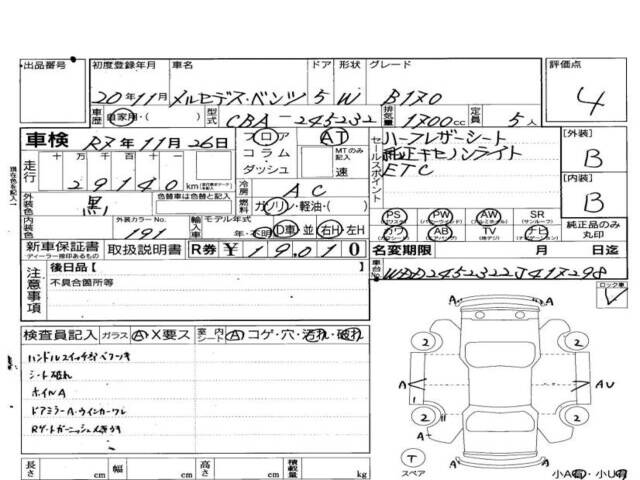 出品番号 初度登録年月 車名 ドア 形状 グレード 評価点
20年11月 メルセデス・ベンツ 5 W B170 4
車歴 自家用・( ) 型式 CBA-245232 排気量 1700cc 定員 5人
車検 R7年11月26日 フロア AT セールスポイント ハーフレザーシート [外装]
コラム MTのみ記入 純正キセノンライト B
走行 十万 万 千 百 十 ダッシュ 速 ETC
29140 km 冷房 AC [内装]
外装色 黒 色替車は色替と記入 燃料 ガソリン・軽油・( ) B
PS PW AW SR
カワ AB TV ナビ 純正品のみ丸印
内装色 外装カラーNo. 191 輸入車 モデル年式 年・不明 D車 並 右H 左H
新車保証書 取扱説明書 R券 ¥19,010 名変期限 月 日迄
ディーラー捺印あるもの
注意事項 後日品[ ] 車台No. WDD2452322J417298
不具合箇所等 ロック車
検査員記入 ガラス A X要ス 室内シート A コゲ・穴・汚れ・破れ
シート破れ
ホイルA
ドアミラーA・ウインカーワレ
2 2
A A AU
2 2
A
T スペア
A
長さ cm 幅 cm 高さ cm 積載量 kg 小A有・小U有